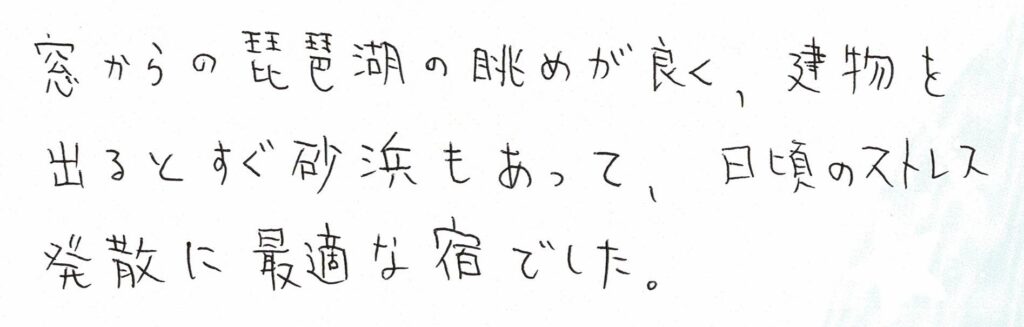 窓からの琵琶湖の眺めが良く、建物を
出るとすぐ砂浜もあって、日頃のストレス
発散に最適な宿でした。